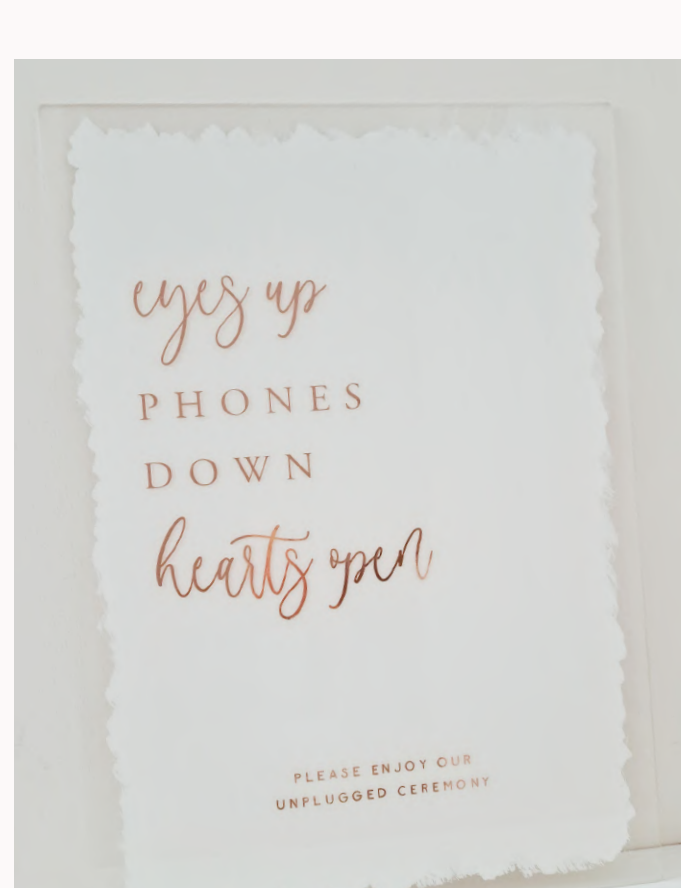 eyes up
PHONES
DOWN
hearts open
PLEASE ENJOY OUR
UNPLUGGED CEREMONY